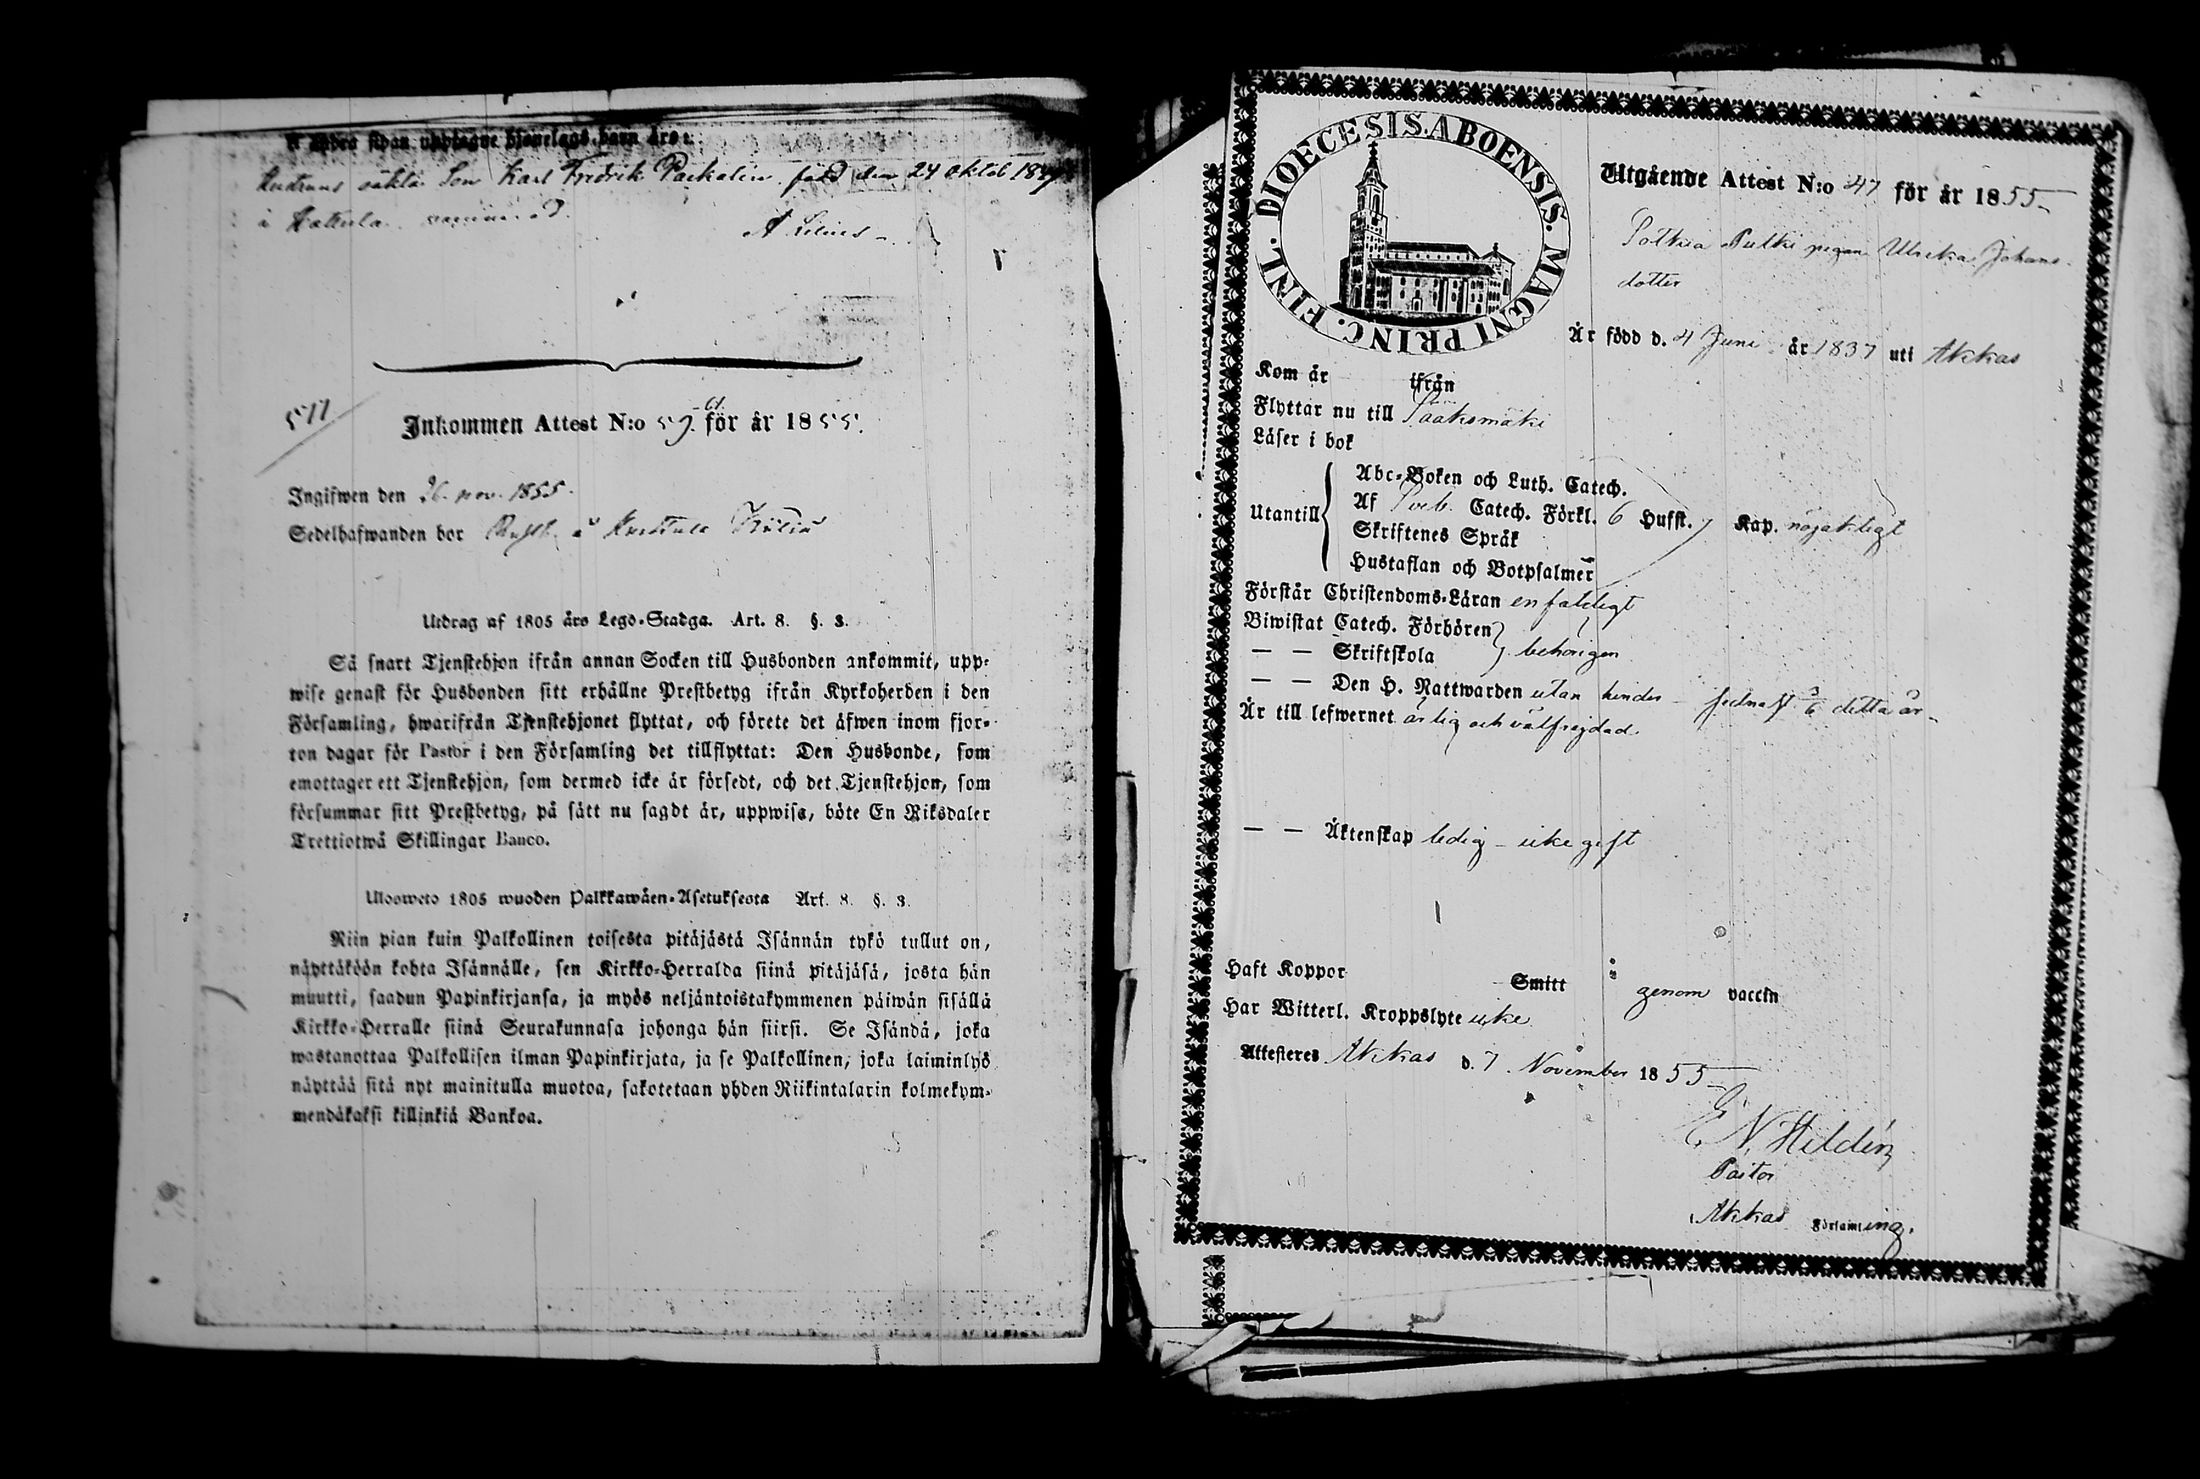 andra sidan upptagne hjonelags barn äro:
Hustruns oäkta Son Karl Fredrik Packalin född den 24 Oktob
i Hattula. vaccinerad.
A Lilius
511
Inkommen Attest N:o 59 för år 1855.
Ingifwen den 26 nov. 1855.
Sedelhafwanden bor
Utdrag af 1805 års Lego-Stadga. Art. 8. §. 3.
Så snart Tjenstehjon ifrån annan Socken till Husbonden ankommit, upp-
wise genast för Husbonden sitt erhållne Prestbetyg ifrån Kyrkoherden i den
Församling, hwarifrån Tjenstehjonet flyttat, och förete det äfwen inom fjor-
ton dagar för Pastor i den Församling det tillflyttat: Den Husbonde, som
emottager ett Tjenstehjon, som dermed icke är försedt, och det Tjenstehjon, som
försummar sitt Prestbetyg, på sätt nu sagdt är, uppwisa, böte En Riksdaler
Trettiotwå Skillingar Banco.
Ulosweto 1805 wuoden Palkkawäen-Asetuksesta Art. 8. §. 3.
Niin pian kuin Palkollinen toisesta pitäjästä Isännän tykö tullut on,
näyttäköön kohta Isännälle, sen Kirkko-Herralda siinä pitäjäsä, josta hän
muutti, saadun Papinkirjansa, ja myös neljäntoistakymmenen päiwän sisällä
Kirkko-Herralle siinä Seurakunnasa johonga hän siirsi. Se Isändä, joka
wastanottaa Palkollisen ilman Papinkirjata, ja se Palkollinen, joka laiminlyö
näyttää sitä nyt mainitulla muotoa, sakotetaan yhden Riikintalarin kolmekym-
mendäkaksi killinkiä Bankoa.
DIOECESIS. ABOENSIS. MAGNI PRINC. FINL.
Utgående Attest N:o 47 för år 1855
Potkia Pulki pigan Ulrika Johans
dotter
Är född d. 4 Juni år 1837 uti Akkas
Kom år ifrån
Flyttar nu till Sääksmäki
Läser i bok
Utantill
Abc-Boken och Luth. Catech.
Af Catech. Förkl. 6 Hufst. 7 Kap. nöjaktligt
Skriftenes Språk
Hustaflan och Botpsalmer
Förstår Christendoms-Läran enfaldigt
Biwistat Catech. Förhören
— — Skriftskola behörigen
— — Den H. Nattwarden utan hinder sednast detta år
Är till lefwernet ärlig och välfrejdad.
— — Äktenskap ledig – icke gift
Haft Koppor Smitt genom vaccin
Har Witterl. Kroppslyte icke
Attesteres Akkas d. 7 November 1855
E N Hildén
Pastor
Akkas Församling.